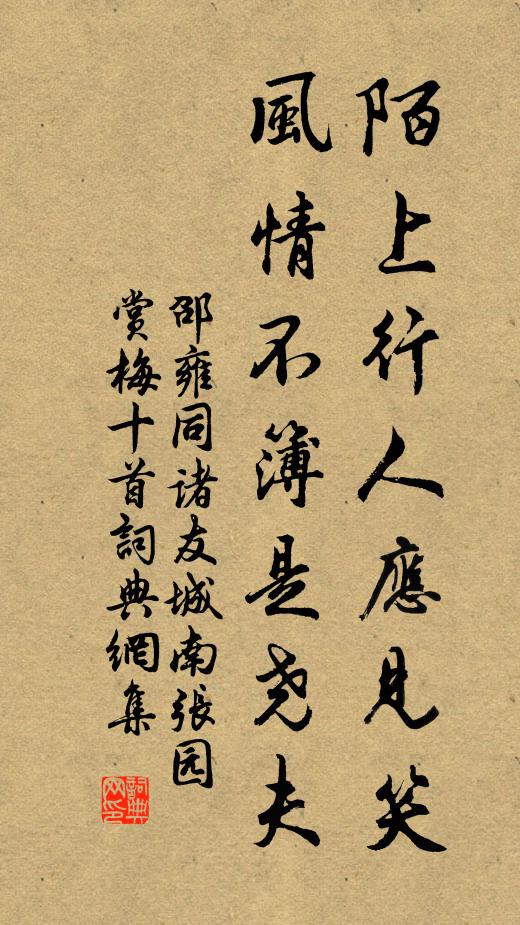 陌上行人應見笑
風情不簿是尧夫
邵雍同诸友城南張园
賞梅十首詞典網集
詞典网印